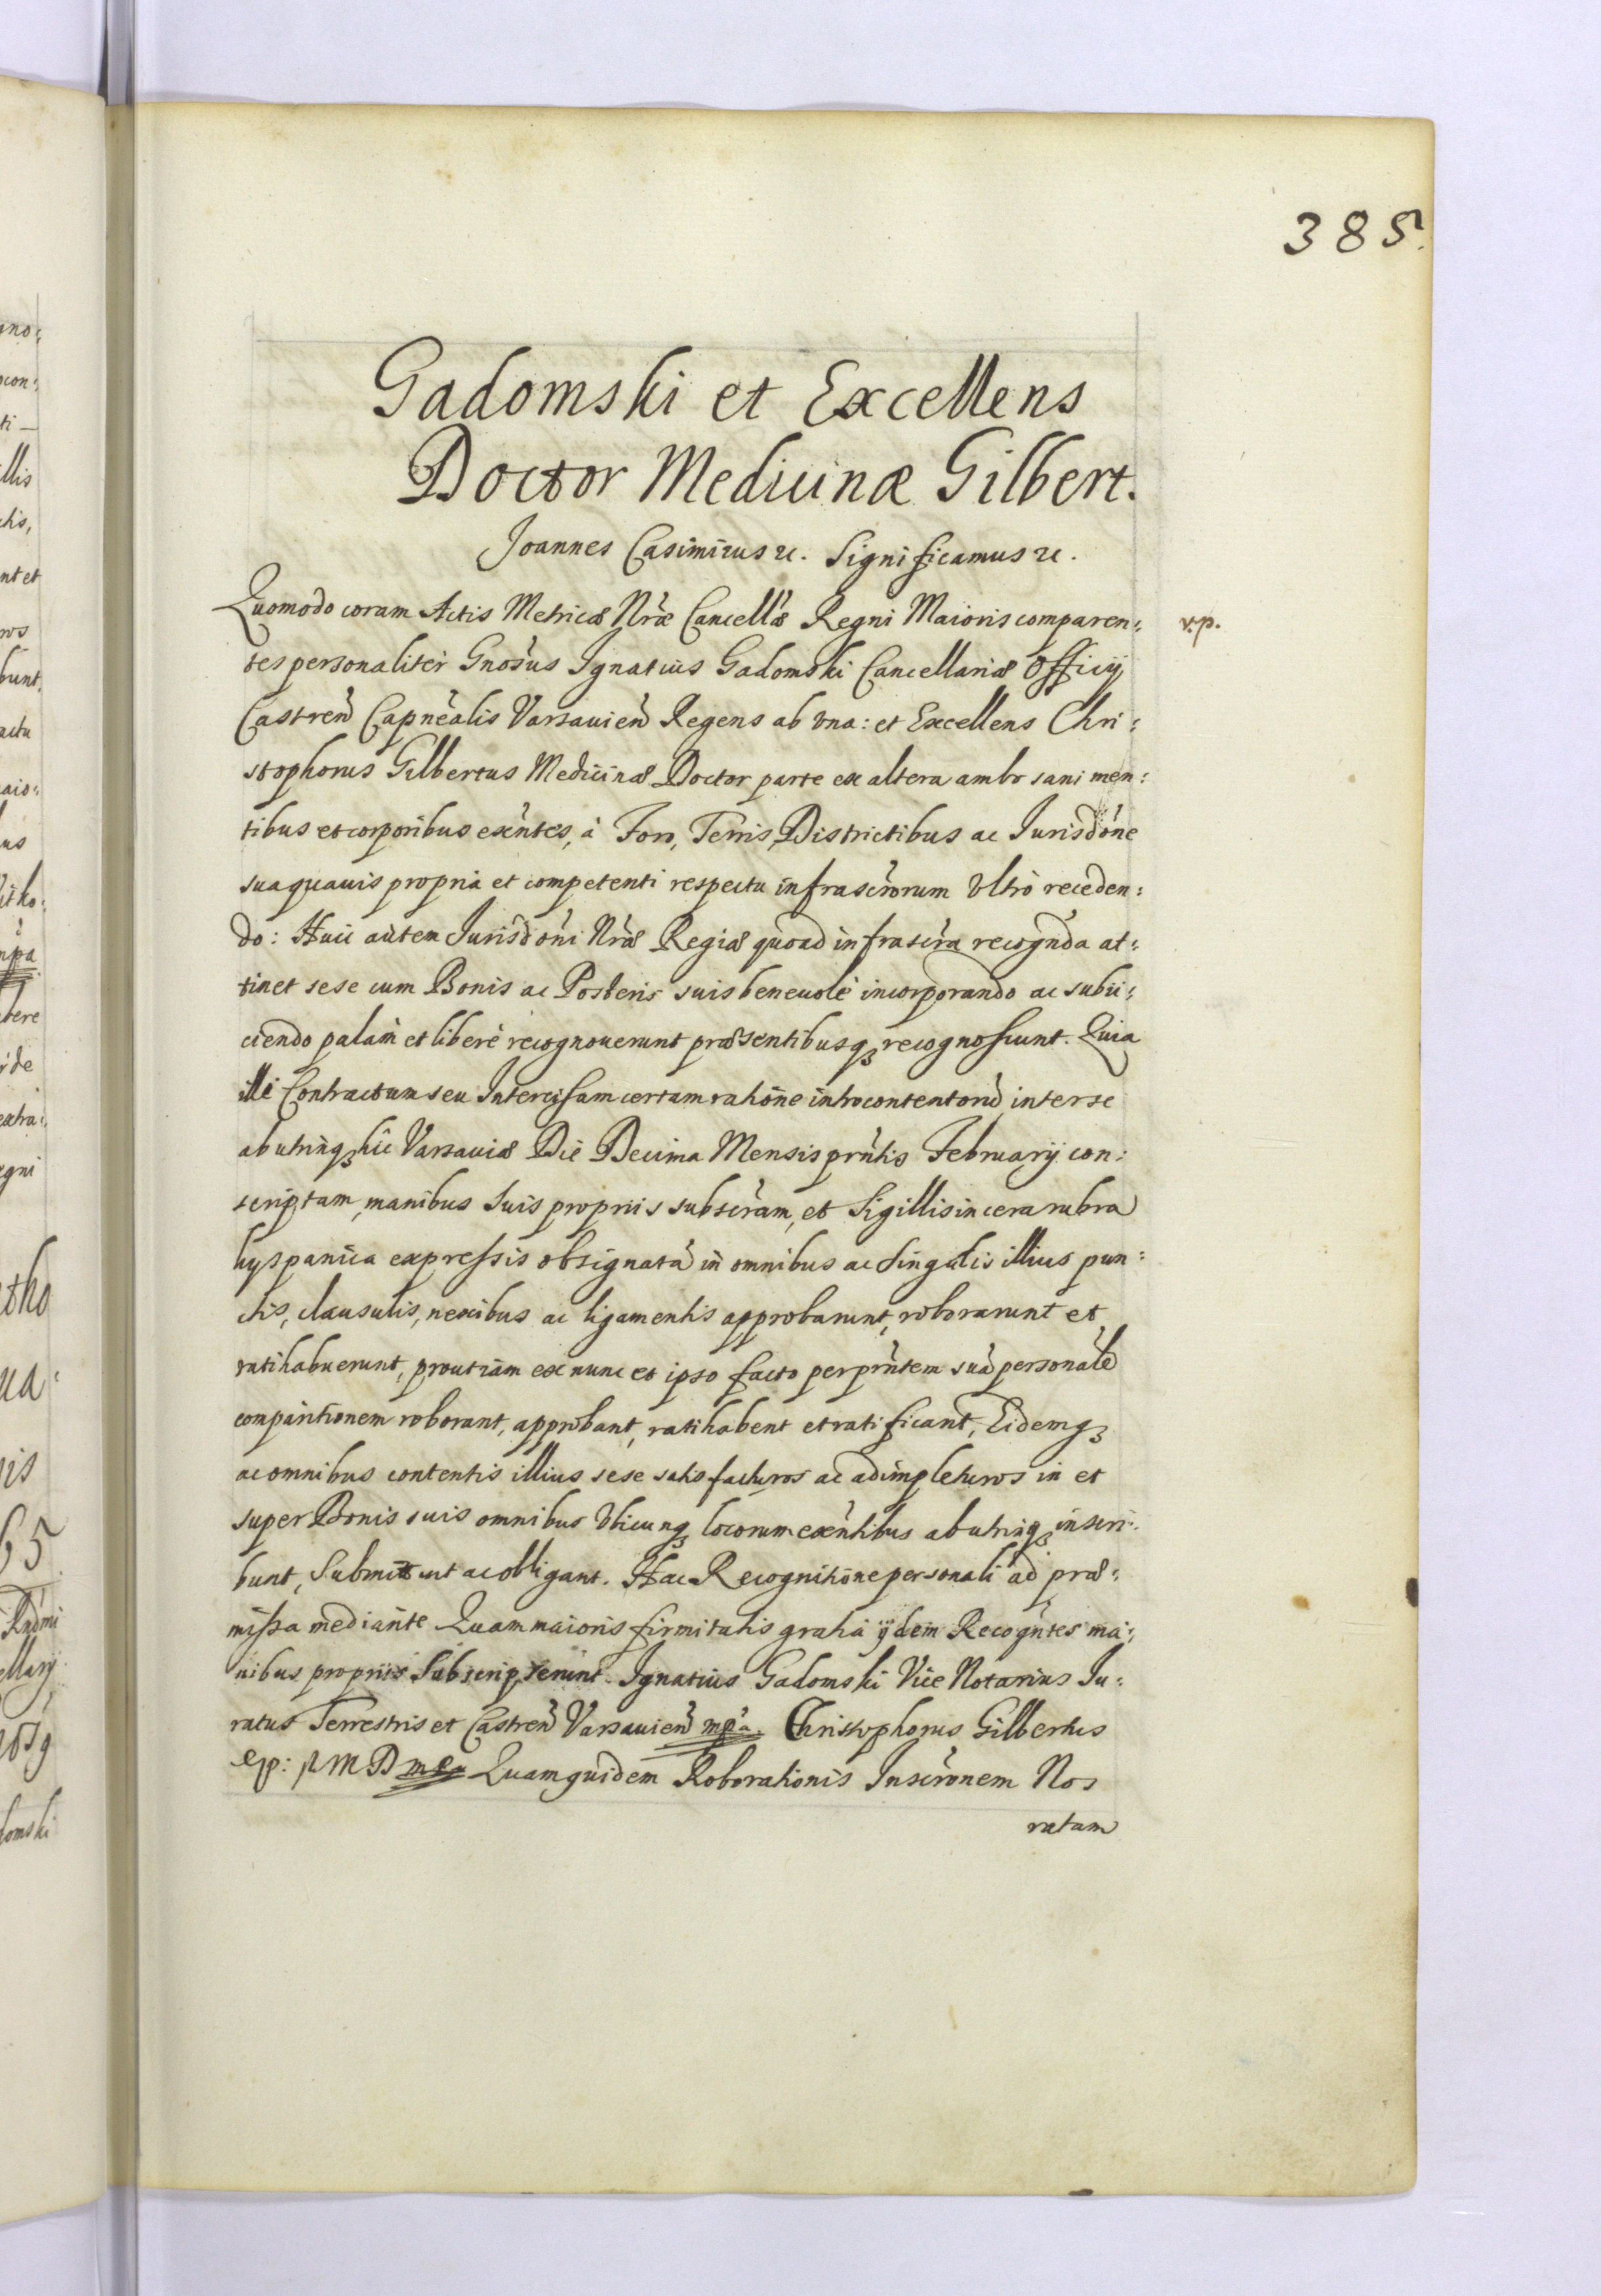 385.
Gadomski et Excellens
Doctor Medicinæ Gilbert.
Joannes Casimirus etc. Significamus etc.
Quomodo coram Actis Metricæ Nræ Cancellæ Regni Maioris comparen:
v.p.
tes personaliter Gnosus Ignatius Gadomski Cancellariæ Officij
Castren Capnealis Varsauien Regens ab vna: et Excellens Chri:
stophorus Gilbertus Medicinæ Doctor parte ex altera ambo sani men:
tibus et corporibus exntes, à Foro, Terris, Districtibus ac Jurisdone
sua quauis propria et competenti respectu infrascrorum Vltrò receden:
do: Huic autem Jurisdoni Nræ Regiæ quoad infrascra recognda at:
tinet sese cum Bonis ac Posteris suis beneuolè incorporando ac subii:
ciendo palàm et liberè recognouerunt præsentibusq3 recognoscunt. Quia
illi Contractum seu Intercisam certam rahone introcontentorũ inter se
ab utrinq3 hîc Varsauiæ Die Decima Mensis prntis February con:
scriptam, manibus Suis propriis subscram, et Sigillis in cera rubra
hyspanica expressis obsignatã in omnibus ac Singulis illius pun:
ctis, clausulis, nexibus ac ligamentis approbarunt, roborarunt et
ratihabuerunt, prout iam ex nunc et ipso facto per prntem suã personalẽ
comparitionem roborant, approbant, ratihabent et ratificant, Eidemq3
ac omnibus contentis illius sese satisfacturos ac adimpleturos in et
super Bonis suis omnibus Vbicunq3 locorum exntibus ab utrinq3 inscri:
bunt, Submittunt ac obligant. Hac Recognitione personali ad præ:
missa mediante Quam maioris firmitatis gratia ijdem Recogntes ma:
nibus propriis Subscripserunt. Ignatius Gadomski Vice Notarius Ju:
ratus Terrestris et Castren Varsauien mpa. Christophorus Gilbertus
M D Quamquidem Roborationis Inscronem Nos
ratam